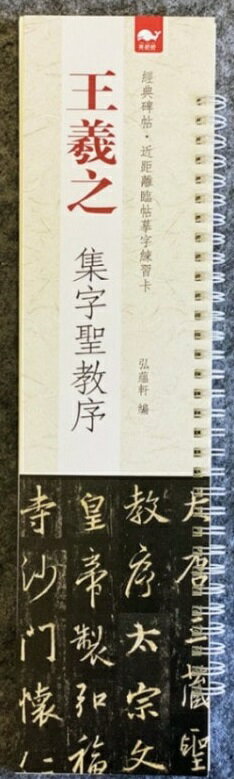 經典碑帖·近距離臨帖摹字練習卡
王羲之
集字聖教序
弘蘊軒 編
唐三藏聖
教序太宗文
皇帝製弘福
寺沙門懷仁